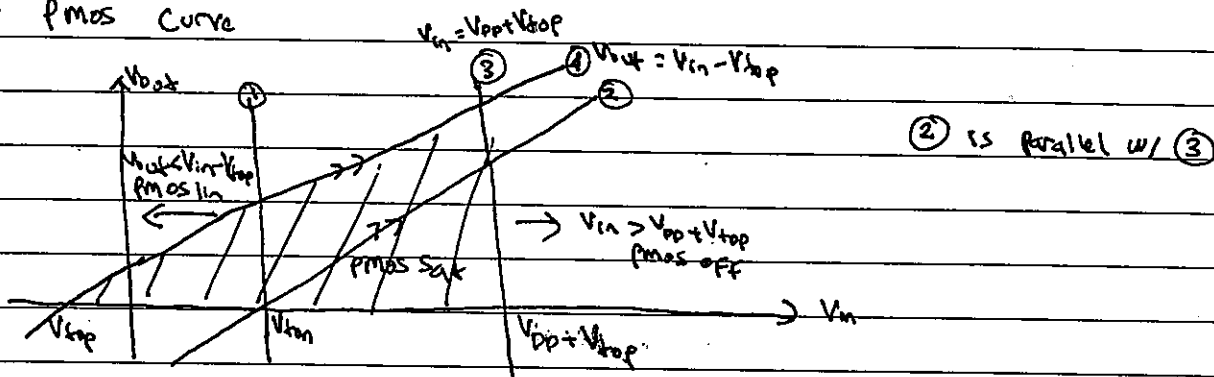 Pmos Curve
Vin = VDD+Vtop
③ ④ Vout = Vin - Vtop
Vout ① ②
② is parallel w/ ③
Vout<Vin-Vtop
pmos lin
Vin > VDD + Vtop
pmos off
pmos sat
Vtop Vton VDD+Vtop Vin